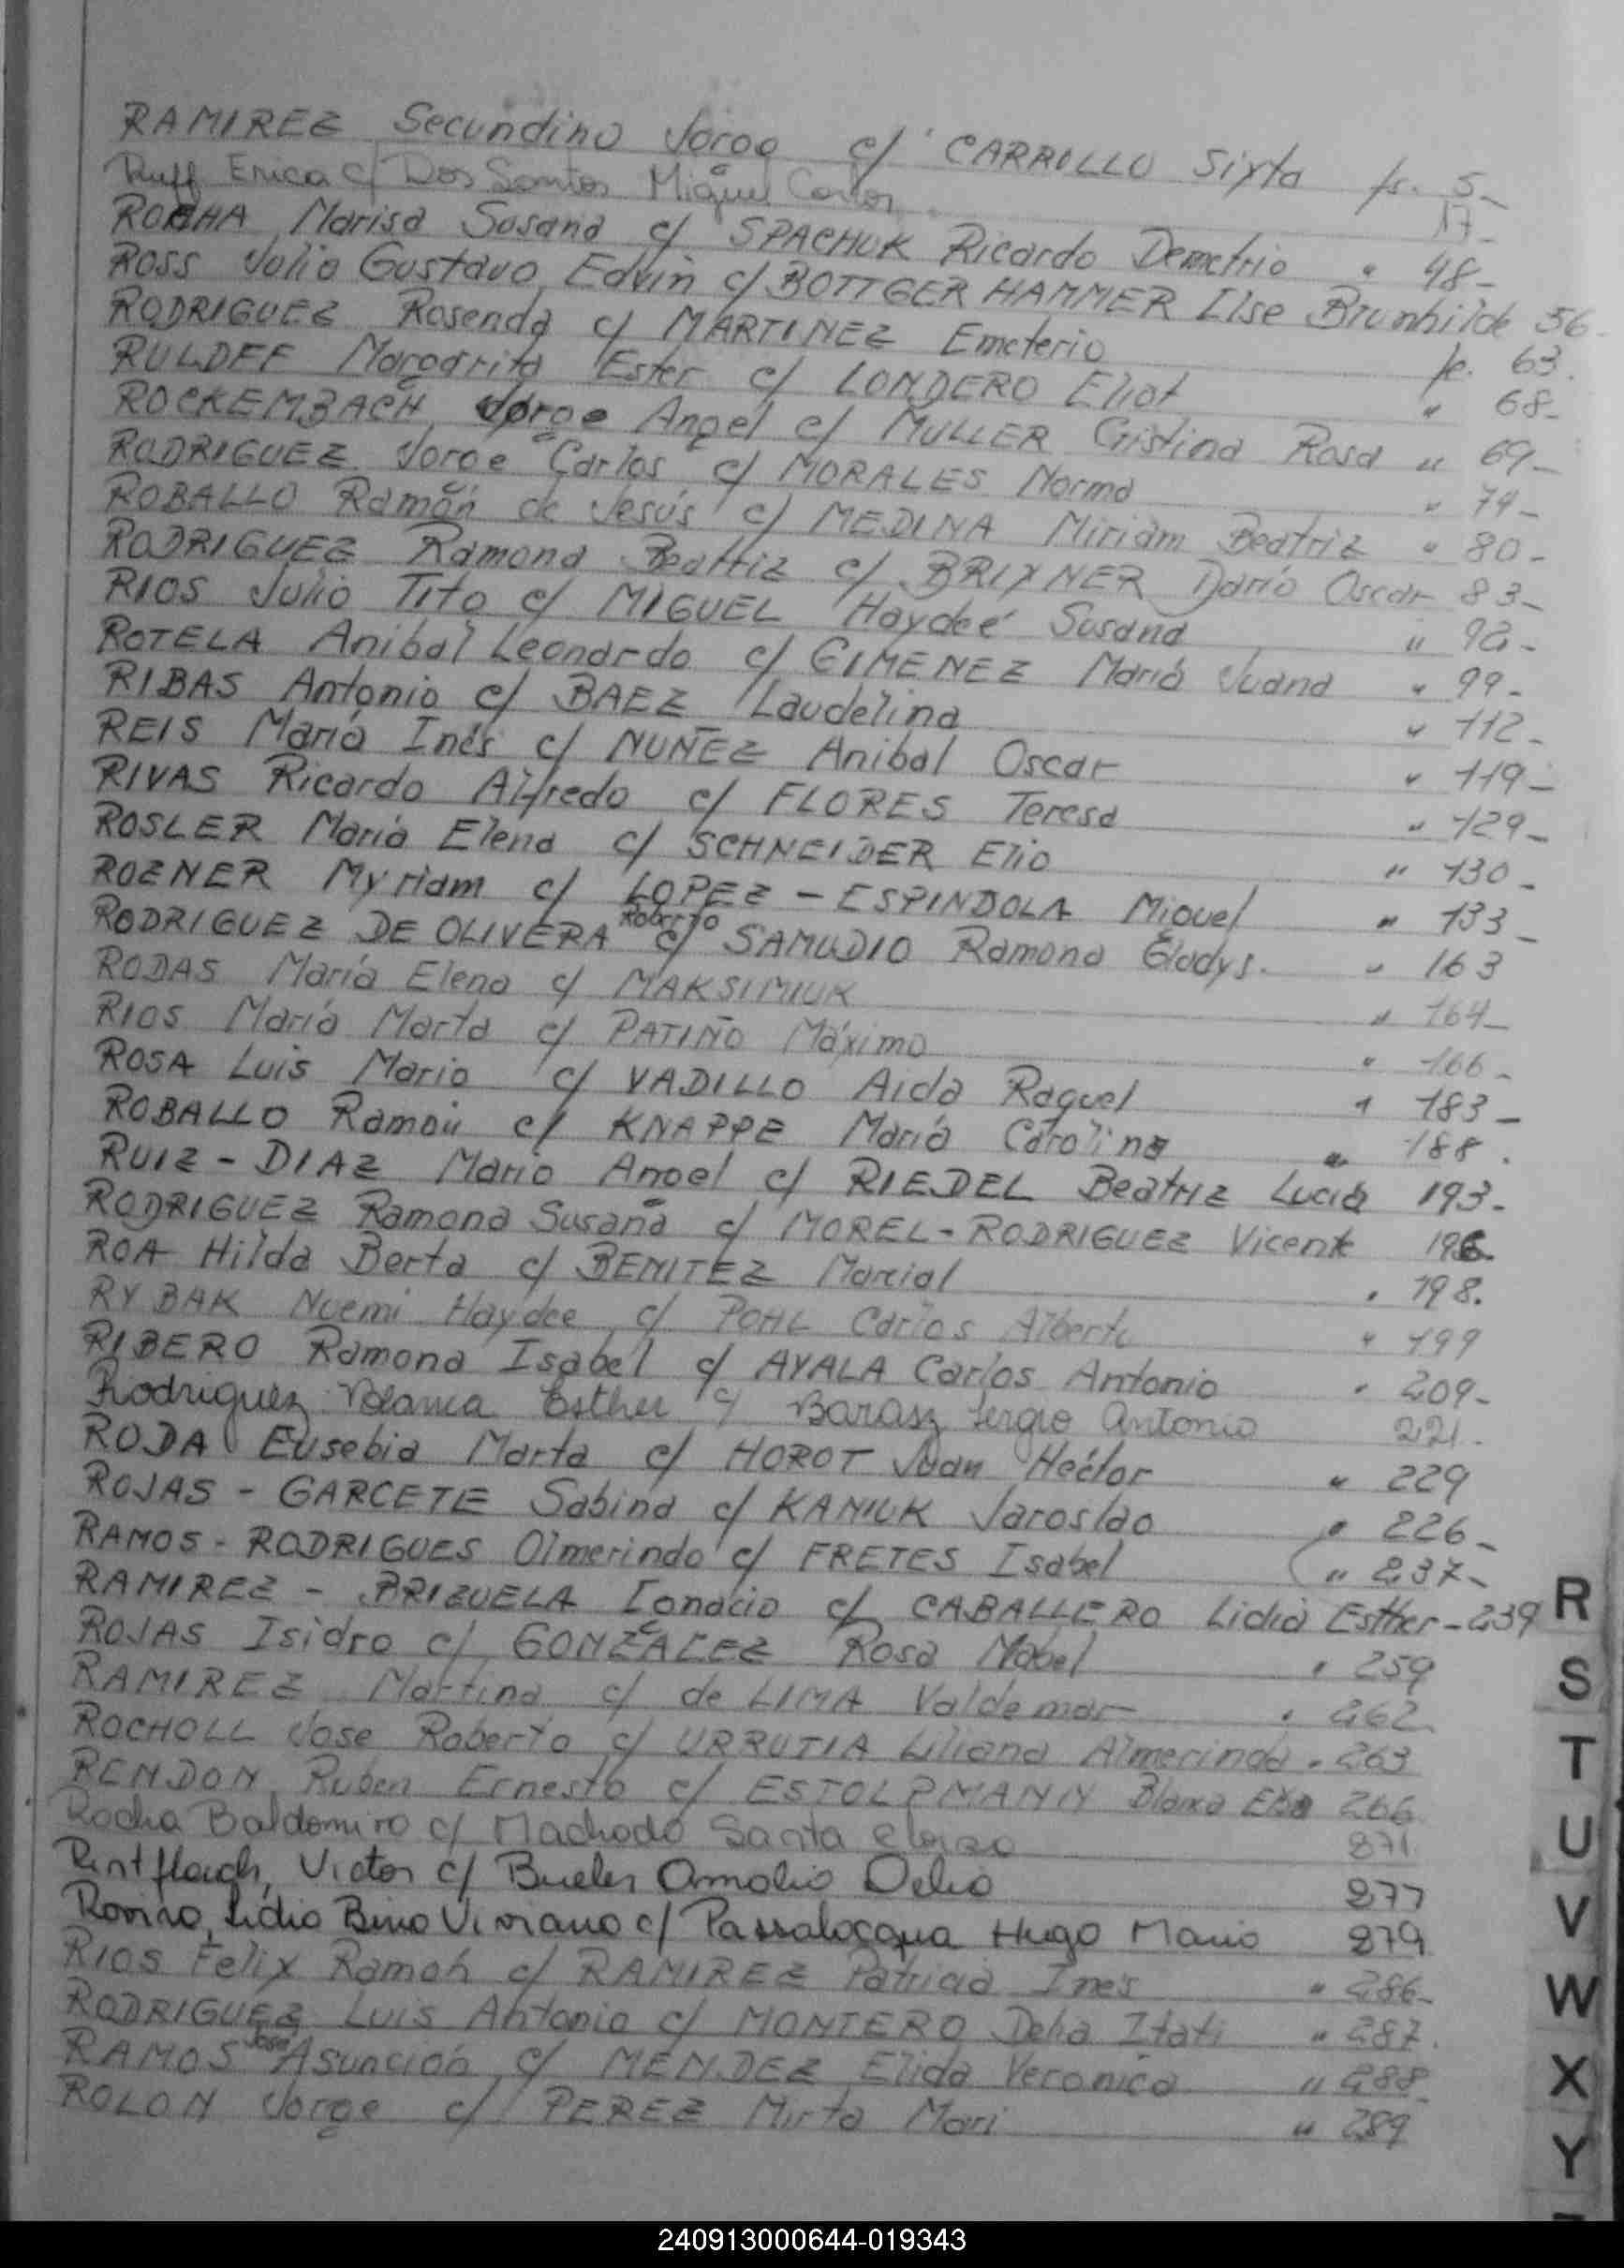 RAMIREZ Secundino Jorge c/ CARROLLO Sixta fs. 5-
Ruff Erica c/ Dos Santos Miguel Carlos 17-
ROCHA Marisa Susana c/ SPACHUK Ricardo Demetrio " 48-
ROSS Julio Gustavo Edvin c/ BOTTGER HAMMER Ilse Brunhilde 56-
RODRIGUEZ Rosenda c/ MARTINEZ Emeterio fs. 63.
RULOFF Margarita Ester c/ LONDERO Eliot " 68-
ROCKEMBACH Jorge Angel c/ MULLER Cristina Rosa " 69-
RODRIGUEZ Jorge Carlos c/ MORALES Norma " 74-
ROBALLO Ramón de Jesús c/ MEDINA Miriam Beatriz " 80-
RODRIGUEZ Ramona Beatriz c/ BRIXNER Darío Oscar 83-
RIOS Julio Tito c/ MIGUEL Haydeé Susana " 92-
ROTELA Anibal Leonardo c/ GIMENEZ María Juana " 99-
RIBAS Antonio c/ BAEZ Laudelina " 112-
REIS María Inés c/ NUÑEZ Anibal Oscar " 119-
RIVAS Ricardo Alfredo c/ FLORES Teresa " 129-
ROSLER María Elena c/ SCHNEIDER Elio " 130-
ROZNER Myriam c/ LOPEZ - ESPINDOLA Miguel " 133-
RODRIGUEZ DE OLIVERA Roberto c/ SAMUDIO Ramona Gladys. " 163
RODAS María Elena c/ MAKSIMIUK " 164-
RIOS María Marta c/ PATIÑO Máximo " 166-
ROSA Luis Mario c/ VADILLO Aida Raquel " 183-
ROBALLO Ramón c/ KNAPPE María Carolina " 188.
RUIZ - DIAZ Mario Angel c/ RIEDEL Beatriz Lucia 193-
RODRIGUEZ Ramona Susana c/ MOREL - RODRIGUEZ Vicente 196.
ROA Hilda Berta c/ BENITEZ Marcial " 198.
RYBAK Noemi Haydee c/ POHL Carlos Alberto " 199
RIBERO Ramona Isabel c/ AYALA Carlos Antonio " 209-
Rodriguez Blanca Esther c/ Barasz Sergio Antonio 221.
RODA Eusebia Marta c/ HOROT Juan Héctor " 229
ROJAS - GARCETE Sabina c/ KANIUK Jaroslao " 226-
RAMOS - RODRIGUES Olmerindo c/ FRETES Isabel " 237-
RAMIREZ - BRIZUELA Ignacio c/ CABALLERO Lidia Esther - 239
ROJAS Isidro c/ GONZALEZ Rosa Mabel " 259
RAMIREZ Martina c/ de LIMA Valdemar " 262
ROCHOLL Jose Roberto c/ URRUTIA Liliana Almerinda " 263
RENDON Ruben Ernesto c/ ESTOLPMANN Blanca 266
Rocha Baldomiro c/ Machado Santa 271
Victor c/ Delio 277
Lidio Bino Viviano c/ Passalacqua Hugo Mario 279
RIOS Felix Ramón c/ RAMIREZ Patricia Inés " 286-
RODRIGUEZ Luis Antonio c/ MONTERO Delia Itati " 287.
RAMOS José Asunción c/ MENDEZ Elida Veronica " 288-
ROLON Jorge c/ PEREZ Mirta Mari " 289
R
S
T
U
V
W
X
Y
240913000644-019343